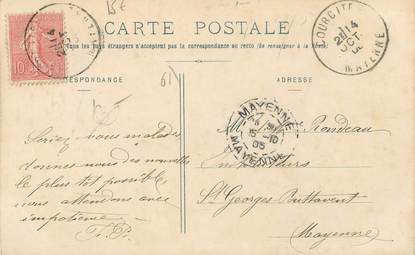 CARTE POSTALE
Tous les pays étrangers n'acceptent pas la correspondance au recto (Se renseigner à la Poste)
CORRESPONDANCE
ADRESSE
61
10
BOURGITÉ
14
OCT
MAYENNE
MAYENNE
MAYENNE
Seriez-vous malades
donnez nous des nouvelles
le plus tôt possible,
nous attendons avec
impatience
M Rondeau
St Georges Buttavent
Mayenne